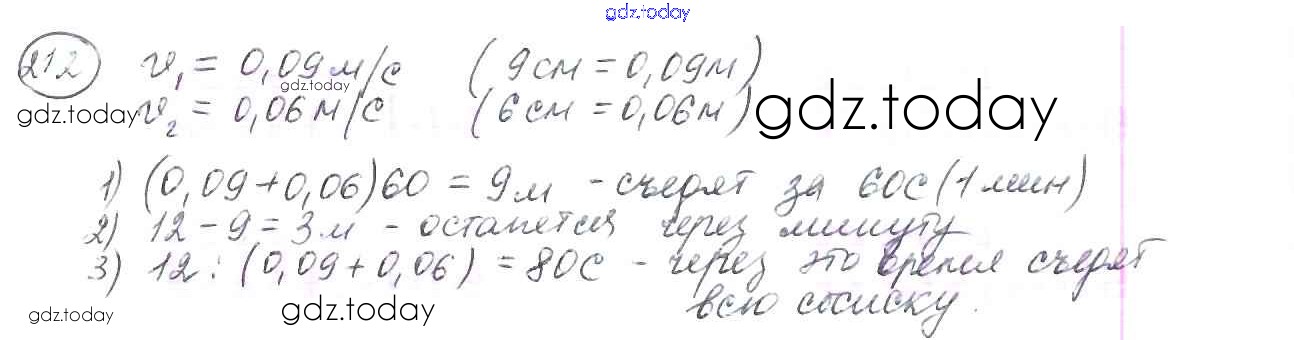 gdz.today
212 v₁ = 0,09 м/с (9 см = 0,09 м)
gdz.today
gdz.today v₂ = 0,06 м/с (6 см = 0,06 м) gdz.today
1) (0,09+0,06)60 = 9 м - съедят за 60с (1 мин)
2) 12 - 9 = 3 м - останется через минуту
3) 12 : (0,09+0,06) = 80с - через это время съедят
всю сосиску.
gdz.today gdz.today